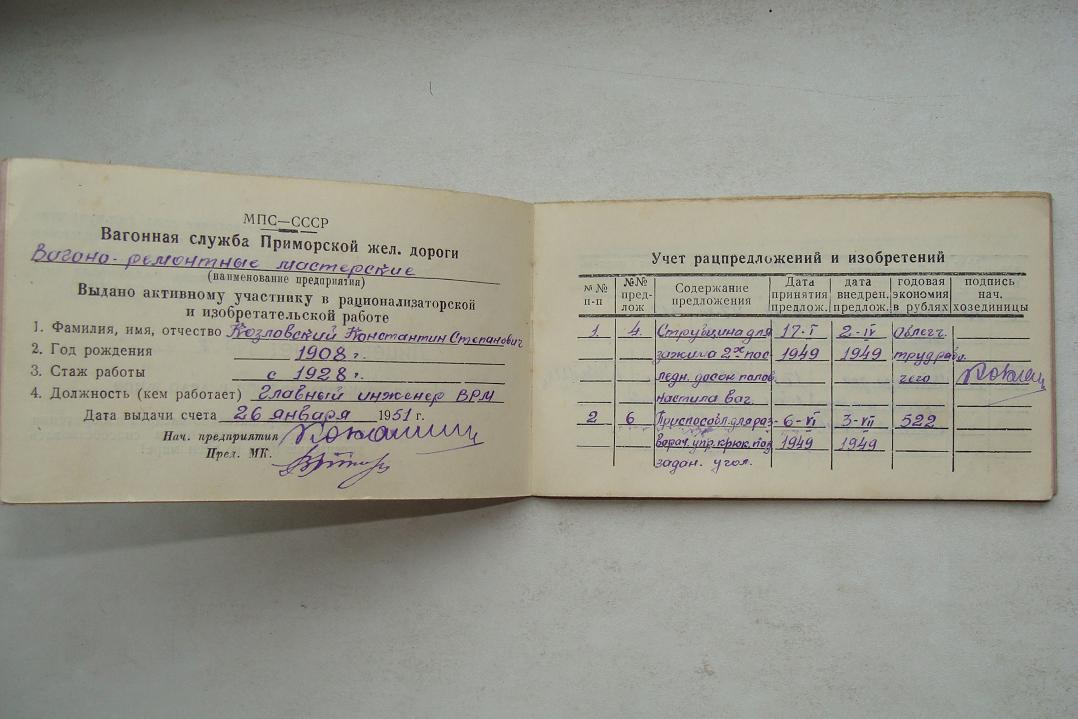 МПС—СССР
Вагонная служба Приморской жел. дороги
Вагоно-ремонтные мастерские
(наименование предприятия)
Выдано активному участнику в рационализаторской
и изобретательской работе
1. Фамилия, имя, отчество Козловский Константин Степанович
2. Год рождения 1908 г.
3. Стаж работы с 1928 г.
4. Должность (кем работает) Главный инженер ВРМ
Дата выдачи счета 26 января 1951 г.
Нач. предприятия
Пред. МК.
Учет рацпредложений и изобретений
№№ п-п №№ пред-лож Содержание предложения Дата принятия предлож. дата внедрен. предлож. годовая экономия в рублях подпись нач. хозединицы
1. 4. Струбцина для 17-I 2-IV Облегч.
зажима 2х пос 1949 1949 труд рабо
ледн. досок полов. чего
настила ваг.
2 6 Приспособл. для раз- 6-VI 3-VII 522
ворач. упр. крюк. под 1949 1949
задан. угол.